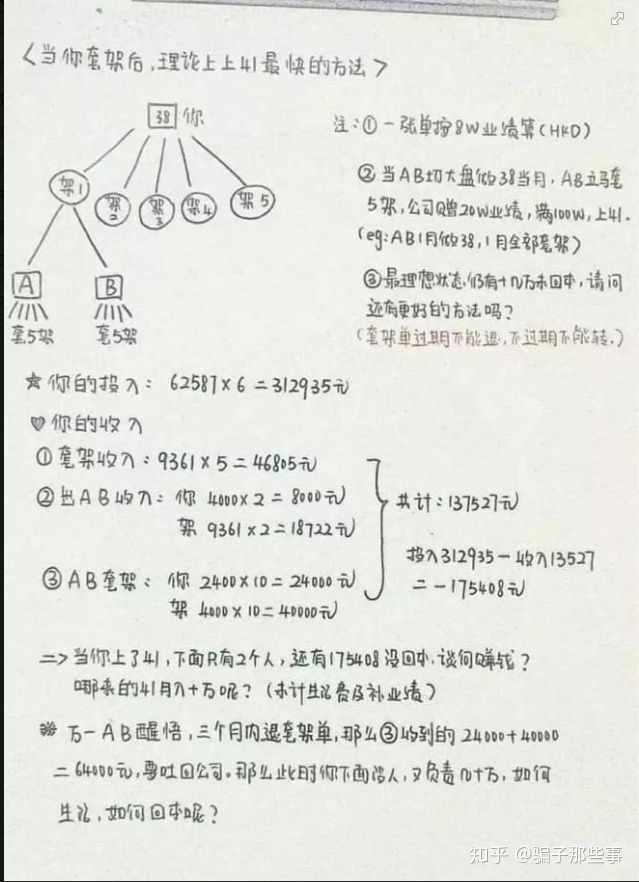 <当你套架后,理论上上41最快的方法>
38 你
架1
架2
架3
架4
架5
A
B
套5架
套5架
注:①一张单按8W业绩算(HKD)
②当AB切大盘做38当月,AB立马套
5架,公司赠20W业绩,满100W,上41.
(eg:AB1月做38,1月全部套架)
③最理想状态仍有十几万未回本,请问
还有更好的方法吗?
(套架单过期不能退,不过期不能转.)
☆你的投入: 62587×6=312935元
♡你的收入
①套架收入:9361×5=46805元
②出AB收入: 你 4000×2=8000元
架 9361×2=18722元
③AB套架: 你 2400×10=24000元
架 4000×10=40000元
共计:137527元
投入312935-收入13527
=-175408元
=>当你上了41,下面只有2个人,还有175408没回本.谈何赚钱?
哪来的41月入十万呢?(未计生活费及补业绩)
※万一AB醒悟,三个月内退套架单,那么③收到的24000+40000
=64000元,要吐回公司。那么此时你下面没人,又负责几十万,如何
生活,如何回本呢?
知乎 @骗子那些事